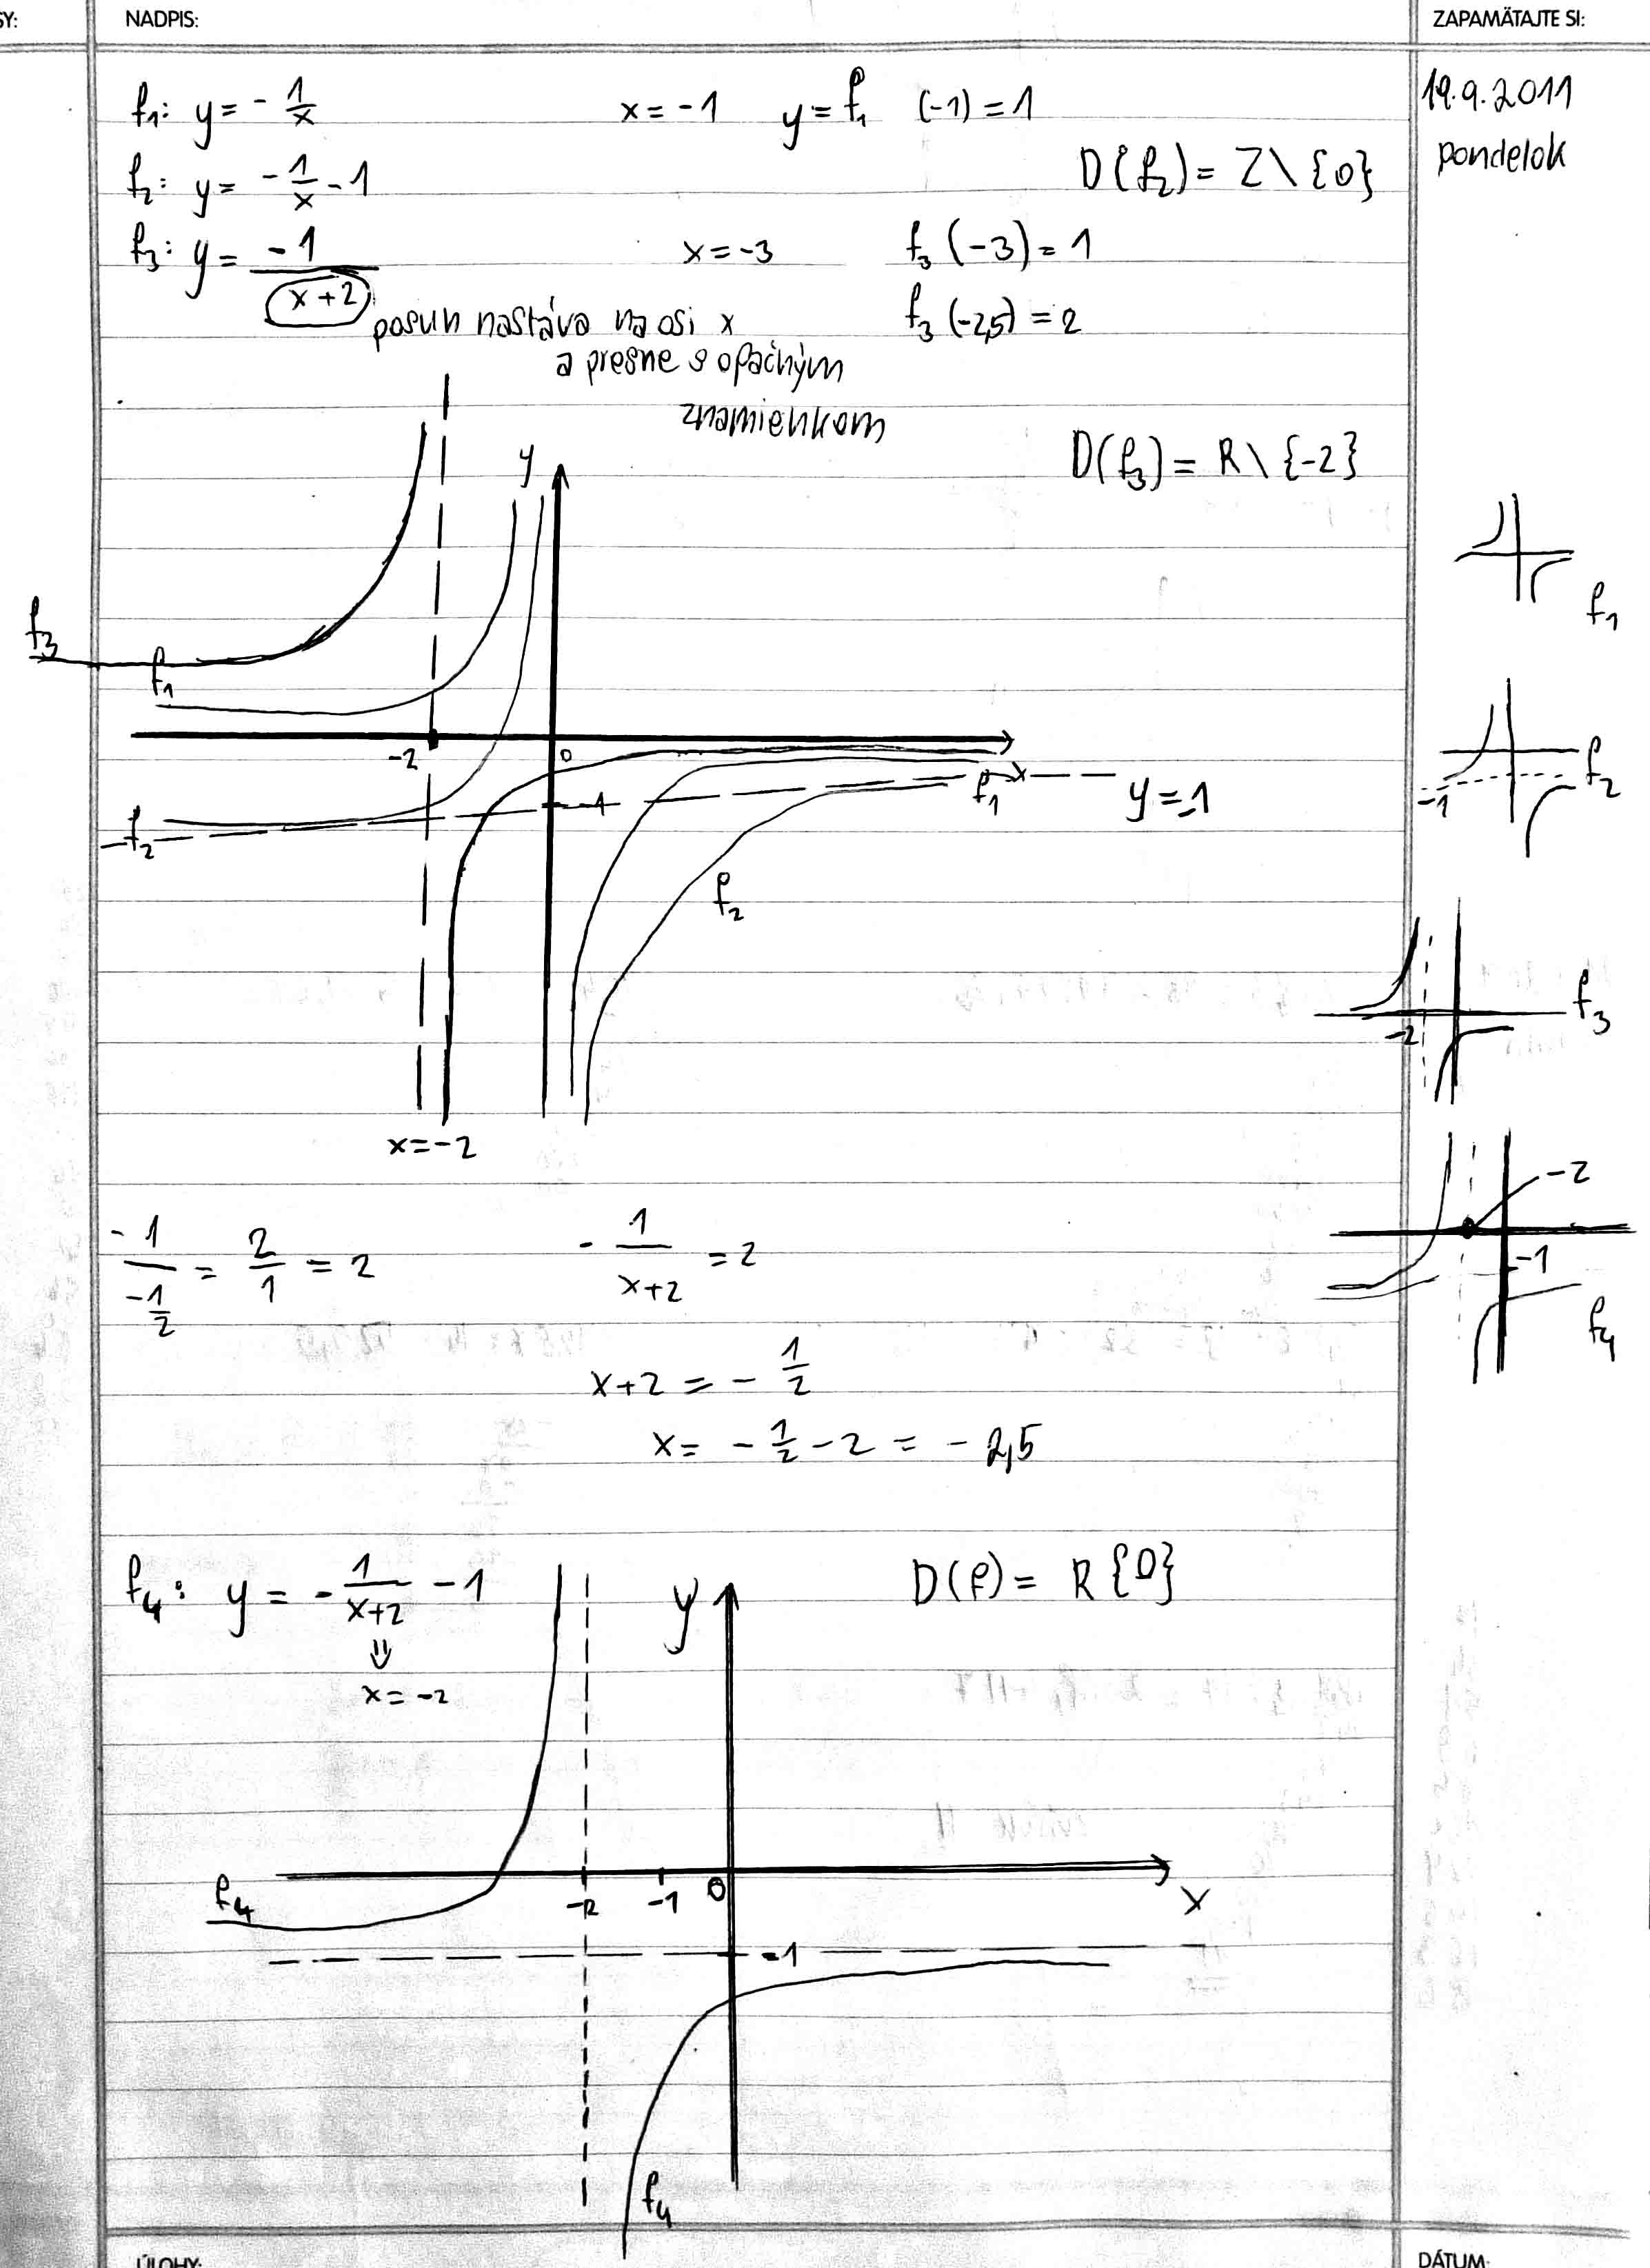 SY:
NADPIS:
ZAPAMÄTAJTE SI:
19.9.2011
pondelok
f₁: y = - 1/x    x = -1    y = f₁ (-1) = 1
f₂: y = - 1/x - 1    D(f₂) = Z \ {0}
f₃: y = -1/(x+2)    x = -3    f₃ (-3) = 1
posun nastáva na osi x    f₃ (-2,5) = 2
a presne s opačným
znamienkom
D(f₃) = R \ {-2}
y
f₃
f₁
-2
0
x
-1
f₁
y = -1
f₂
f₂
x = -2
f₁
f₂
-1
f₃
-2
-2
-1
f₄
-1/(-1/2) = 2/1 = 2    - 1/(x+2) = 2
x+2 = - 1/2
x = - 1/2 - 2 = - 2,5
f₄: y = - 1/(x+2) - 1    D(f) = R {0}
⇓
x = -2
y
f₄
-2
-1
0
x
-1
f₄
ÚLOHY:
DÁTUM: